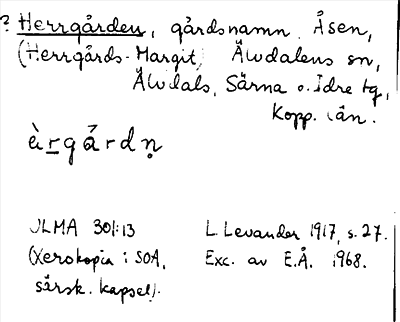 ? Herrgården, gårdsnamn. Åsen,
(Herrgårds-Margit) Älvdalens sn,
Älvdals, Särna o. Idre tg,
Kopp. län.
ὰ r̲ g ά̊ r d n̥
ULMA 301:13
(Xerokopia i SOA,
särsk. kapsel).
L. Levander 1917, s. 27.
Exc. av E.Å. 1968.